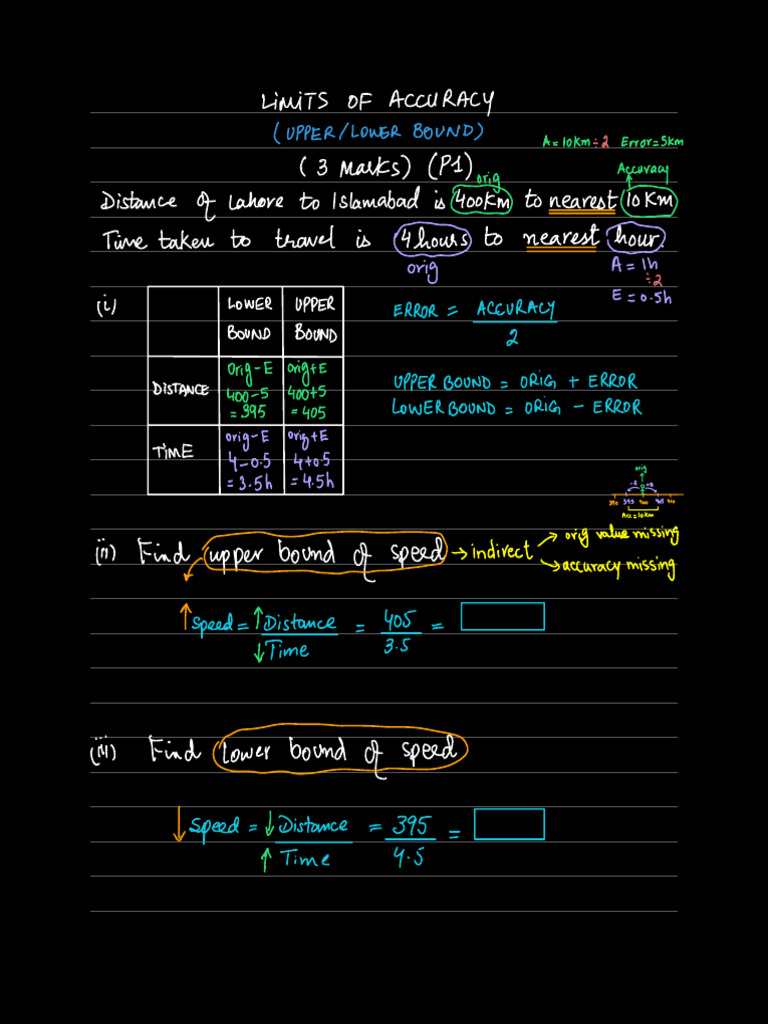 LIMITS OF ACCURACY
(UPPER/LOWER BOUND)
A = 10km ÷ 2 Error = 5km
(3 Marks) (P1)
orig
Accuracy
Distance of Lahore to Islamabad is 400Km to nearest 10 Km
Time taken to travel is 4 hours to nearest hour.
orig
A = 1h
÷2
E = 0.5h
(i)
LOWER BOUND
UPPER BOUND
DISTANCE
orig - E
400 - 5
= 395
orig + E
400+5
= 405
TIME
orig - E
4 - 0.5
= 3.5h
orig + E
4+0.5
= 4.5h
ERROR = ACCURACY
2
UPPER BOUND = ORIG + ERROR
LOWER BOUND = ORIG - ERROR
orig
-5 +5
390 395 400 405 410
Acc = 10Km
(ii) Find upper bound of speed → indirect
orig value missing
accuracy missing
↑ Speed = ↑ Distance = 405 =
↓ Time 3.5
(iii) Find lower bound of speed
↓ Speed = ↓ Distance = 395 =
↑ Time 4.5